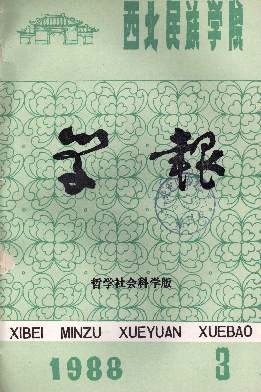 西北民族学院
学报
哲学社会科学版
XIBEI MINZU XUEYUAN XUEBAO
1988 3